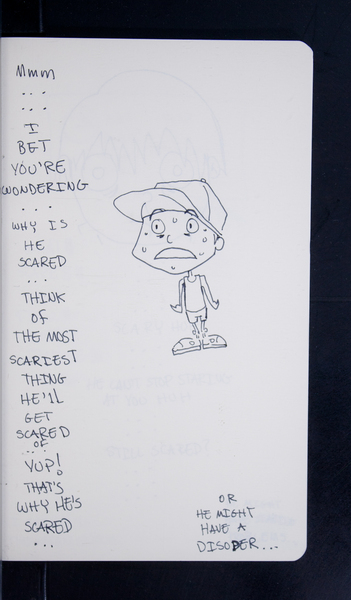 Mmm
...
...
I
BET
YOU'RE
WONDERING
...
WHY IS
HE
SCARED
...
THINK
OF
THE MOST
SCARIEST
THING
HE'll
GET
SCARED
OF
...
YUP!
THAT'S
WHY HE'S
SCARED
...
OR
HE MIGHT
HAVE A
DISODER...